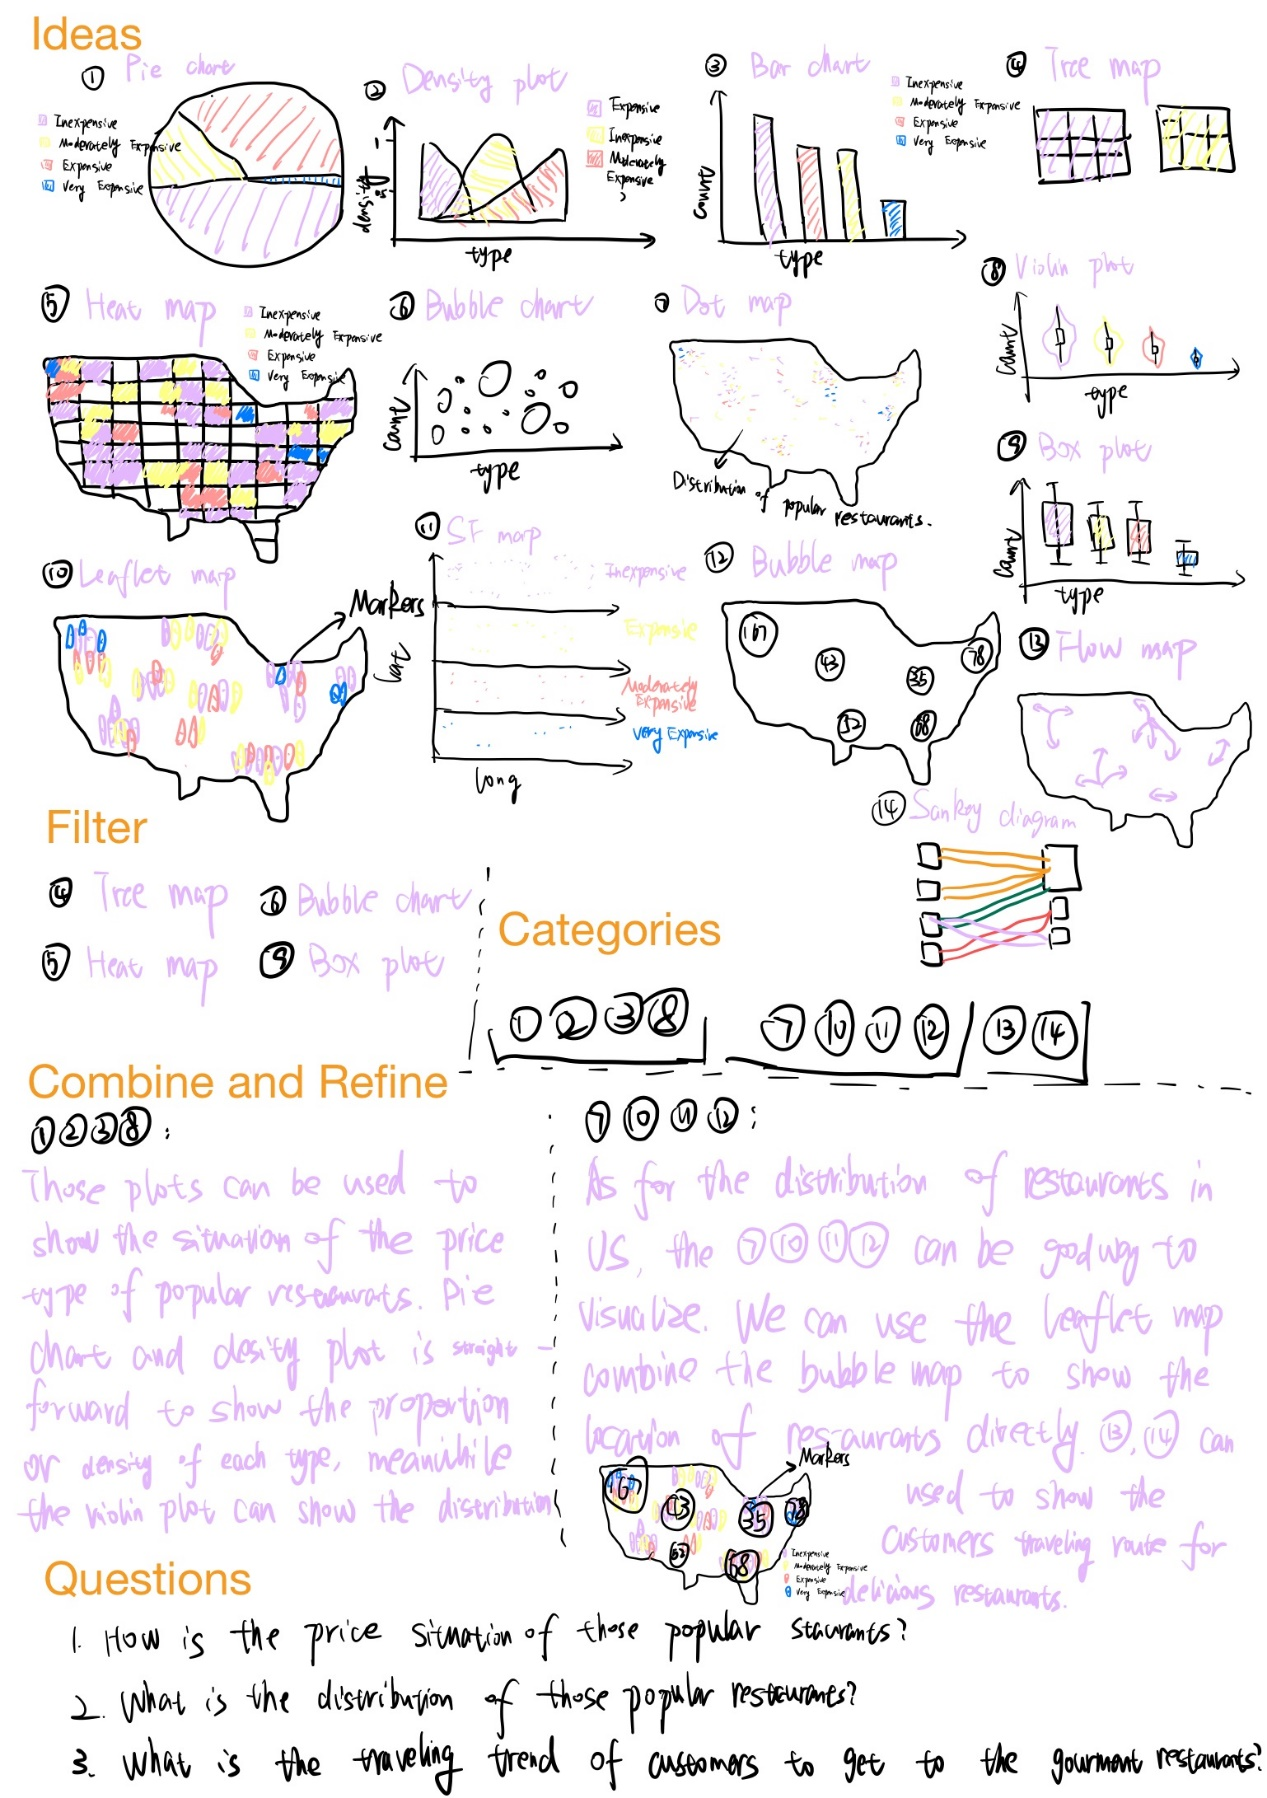 Ideas
① Pie chart
Inexpensive
Moderately Expensive
Expensive
Very Expensive
② Density plot
Expensive
Inexpensive
Moderately
Expensive
density
type
③ Bar chart
Inexpensive
Moderately Expensive
Expensive
Very Expensive
Count
type
④ Tree map
⑤ Heat map
Inexpensive
Moderately Expensive
Expensive
Very Expensive
⑥ Bubble chart
Count
type
⑦ Dot map
Distribution of popular restaurants.
⑧ Violin plot
Count
type
⑨ Box plot
Count
type
⑩ Leaflet map
Markers
⑪ SF map
Inexpensive
Expensive
Moderately
Expensive
Very Expensive
Lat
long
⑫ Bubble map
167
43
35
78
52
68
⑬ Flow map
⑭ Sankey diagram
Filter
④ Tree map ⑥ Bubble chart
⑤ Heat map ⑨ Box plot
Categories
① ② ③ ⑧ ⑦ ⑩ ⑪ ⑫ ⑬ ⑭
Combine and Refine
① ② ③ ⑧ :
Those plots can be used to
show the situation of the price
type of popular restaurats. Pie
chart and desity plot is straight -
forward to show the proportion
or density of each type, meanwhile
the violin plot can show the distribution
⑦ ⑩ ⑪ ⑫ :
As for the distribution of restaurants in
US, the ⑦ ⑩ ⑪ ⑫ can be good way to
visualize. We can use the leaflet map
combine the bubble map to show the
location of restaurants directly. ⑬, ⑭ can
used to show the
customers traveling route for
delicious restaurants.
Markers
167
43
35
78
52
68
Inexpensive
Moderately Expensive
Expensive
Very Expensive
Questions
1. How is the price situation of those popular staurants?
2. What is the distribution of those popular restaurants?
3. What is the traveling trend of customers to get to the gourment restaurants?